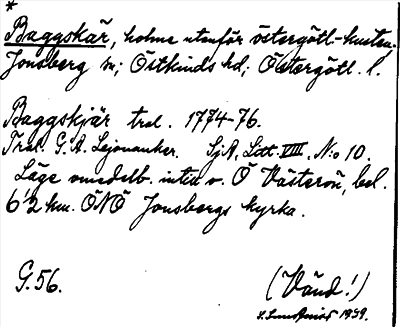 *
Baggskär, holme utanför östergötl.-kusten.
Jonsberg sn; Östkinds hd; Östergötl. l.
Baggskjär tral. 1774-76.
Tral. G.A. Lejonanker. SjA, Litt. VIII. N:o 10.
Läge omedelb. intill o. Ö Västerön, bel.
6 ½ km. ÖNÖ Jonsbergs kyrka.
G.56.
(Vänd!)
1939.